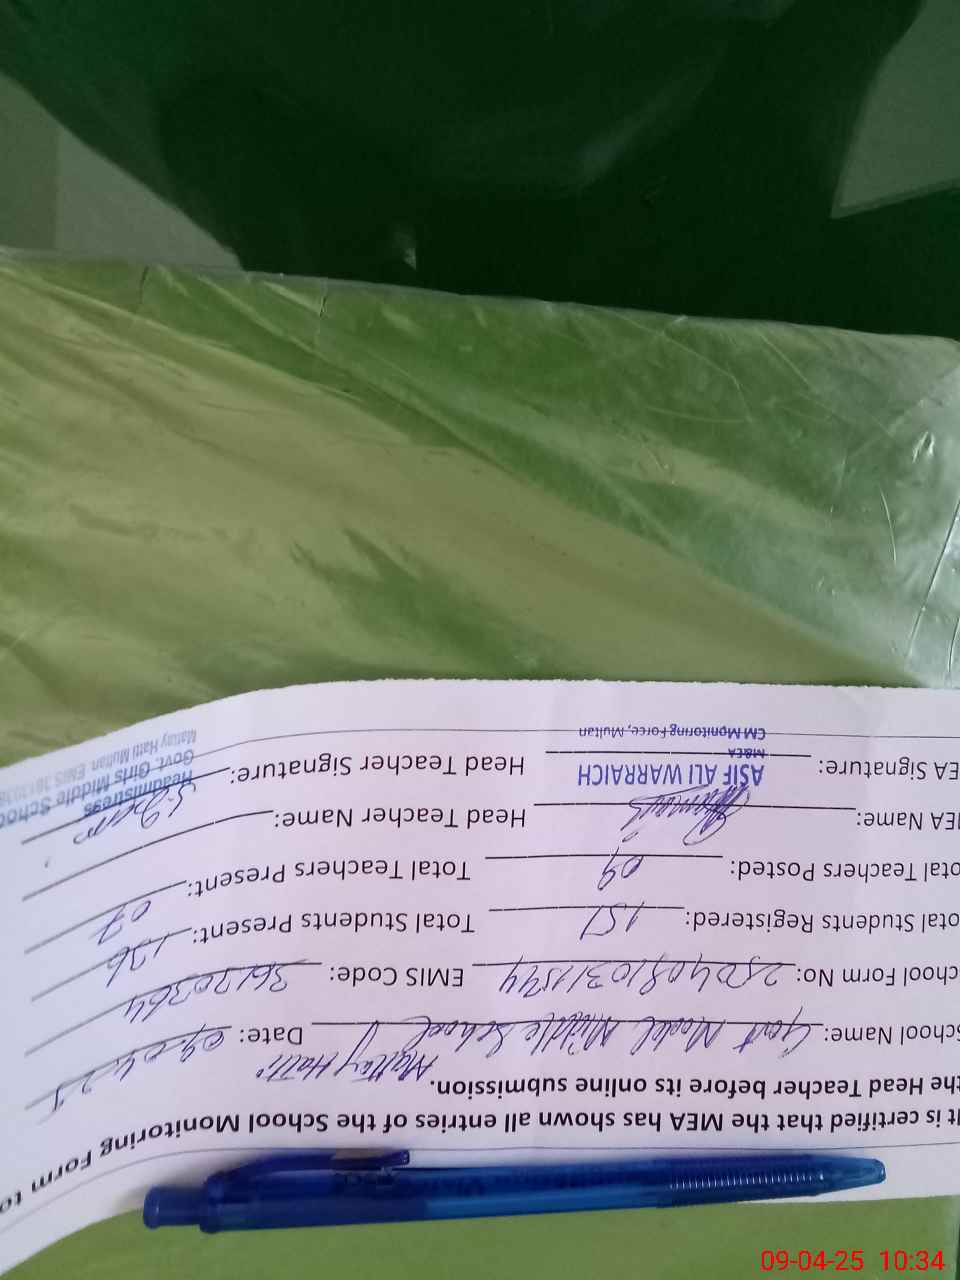 It is certified that the MEA has shown all entries of the School Monitoring Form to
the Head Teacher before its online submission.
School Name: Govt Model Middle School Mattay Hatti Date: 09.04.25
School Form No: EMIS Code: 36120364
Total Students Registered: 151 Total Students Present: 136
Total Teachers Posted: 09 Total Teachers Present: 07
MEA Name: Head Teacher Name:
EA Signature: Head Teacher Signature:
ASIF ALI WARRAICH
M&EA
CM Monitoring Force, Multan
Headmistress
Govt. Girls Middle Schoo
Mattay Hatti Multan. EMIS
09-04-25 10:34